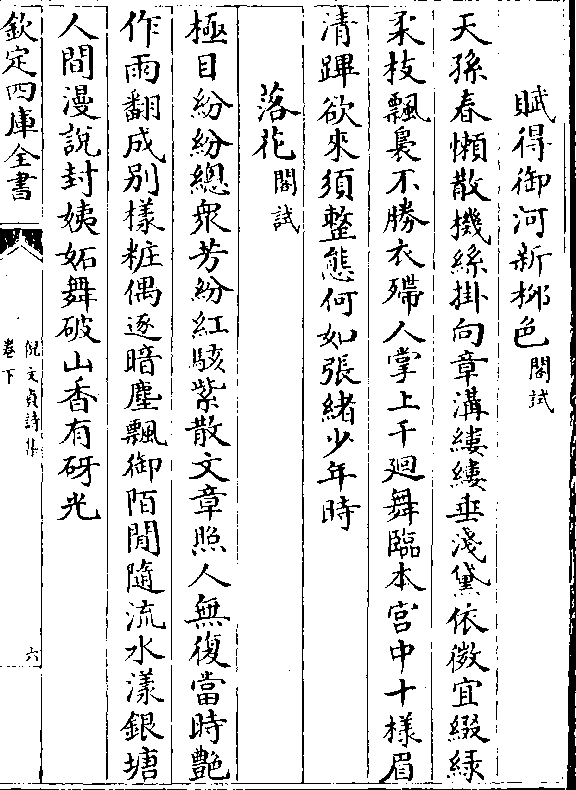 賦得御河新柳色閣試
天孫春懶散機絲掛向章溝縷縷垂淺黛依微宜綴緑
柔枝飄裊不勝衣殢人掌上千廻舞臨本宫中十樣眉
清蹕欲來須整態何如張緒少年時
落花閣試
極目紛紛總衆芳紛紅駭紫散文章照人無復當時艷
作雨翻成别樣粧偶逐暗塵飄御陌閒隨流水漾銀塘
人間漫說封姨妬舞破山香有砑光
欽定四庫全書
倪文貞詩集
卷下
六